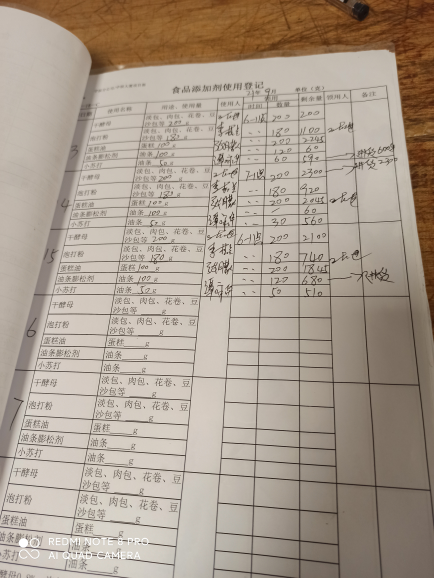 食品添加剂使用登记
单位（克）
使用名称 用途、使用量 使用人 时间 数量 剩余量 领用人 备注
3
干酵母 淡包、肉包、花卷、豆沙包等 200 g 6-1点 200 200
泡打粉 淡包、肉包、花卷、豆沙包等 180 g 180 1100
蛋糕油 蛋糕 100 g 200 2245
油条膨松剂 油条 100 g 120 60
小苏打 油条 50 g 60 590
4
干酵母 淡包、肉包、花卷、豆沙包等 200 g 7-1点 200 2300
泡打粉 淡包、肉包、花卷、豆沙包等 180 g 180 920
蛋糕油 蛋糕 100 g 200 2045
油条膨松剂 油条 100 g 60
小苏打 油条 50 g 30 560
5
干酵母 淡包、肉包、花卷、豆沙包等 200 g 6-1点 200 2100
泡打粉 淡包、肉包、花卷、豆沙包等 180 g 180 740
蛋糕油 蛋糕 100 g 200 1845
油条膨松剂 油条 100 g 120 680
小苏打 油条 50 g 50 510
6
干酵母 淡包、肉包、花卷、豆沙包等____g
泡打粉 淡包、肉包、花卷、豆沙包等____g
蛋糕油 蛋糕____g
油条膨松剂 油条____g
小苏打 油条____g
7
干酵母 淡包、肉包、花卷、豆沙包等____g
泡打粉 淡包、肉包、花卷、豆沙包等____g
蛋糕油 蛋糕____g
油条膨松剂 油条____g
小苏打 油条____g
干酵母 淡包、肉包、花卷、豆沙包等____g
泡打粉 淡包、肉包、花卷、豆沙包等____g
蛋糕油 蛋糕____g
油条膨松剂 油条____g
小苏打 油条____g
干酵母 淡包、肉包、花卷、豆
REDMI NOTE 8 PRO
AI QUAD CAMERA